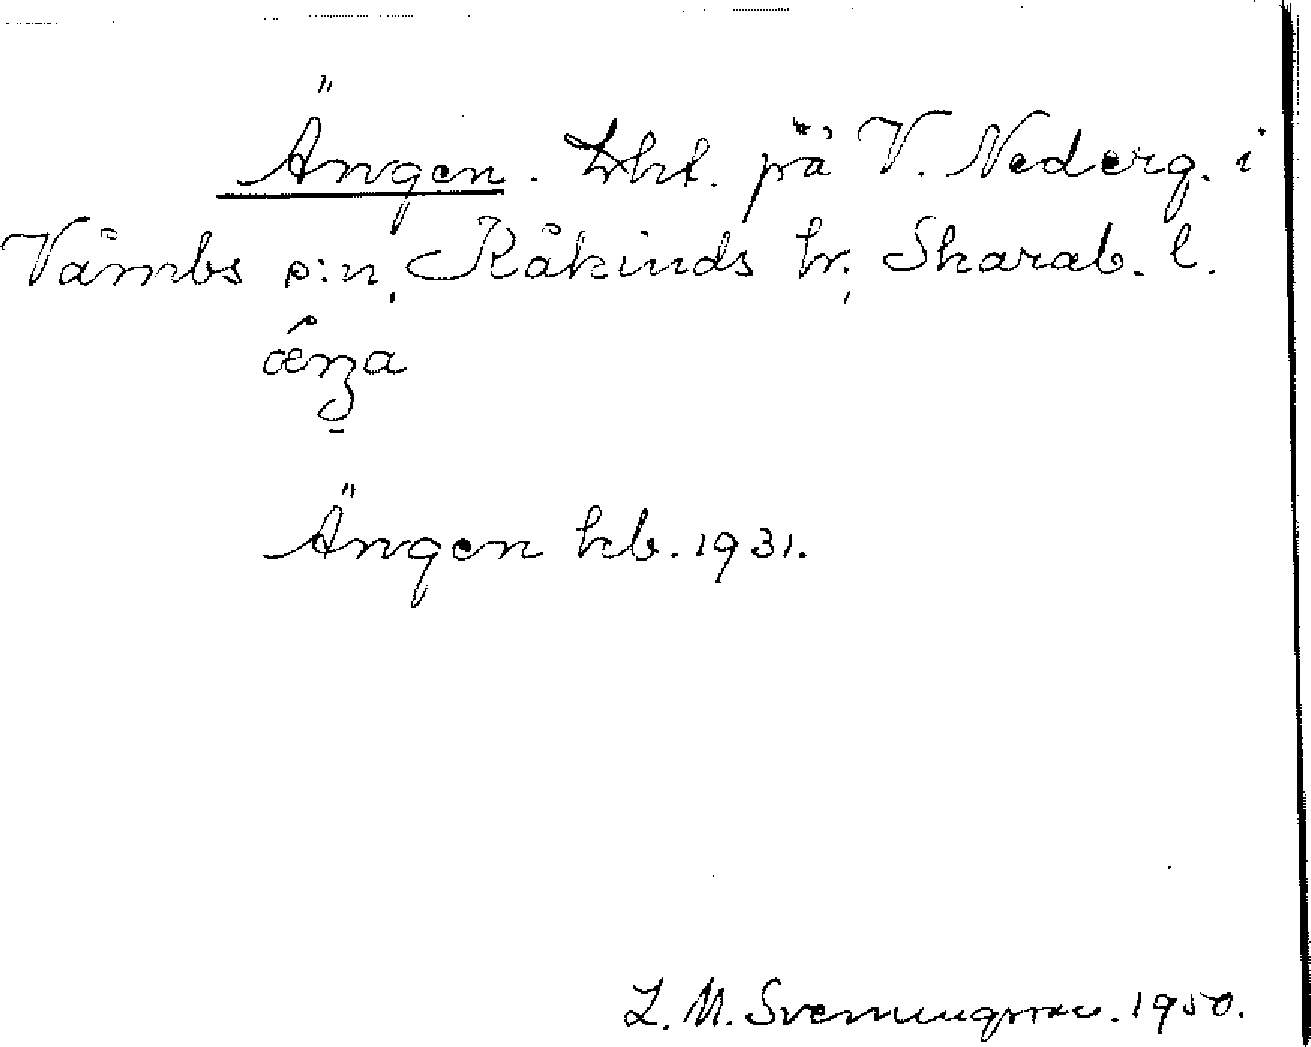 Ängen. Lht. på V. Nederg. i
Våmbs s:n, Kåkinds hr, Skarab. l.
Ängen hb. 1931.
L. M. Svenungsson. 1950.